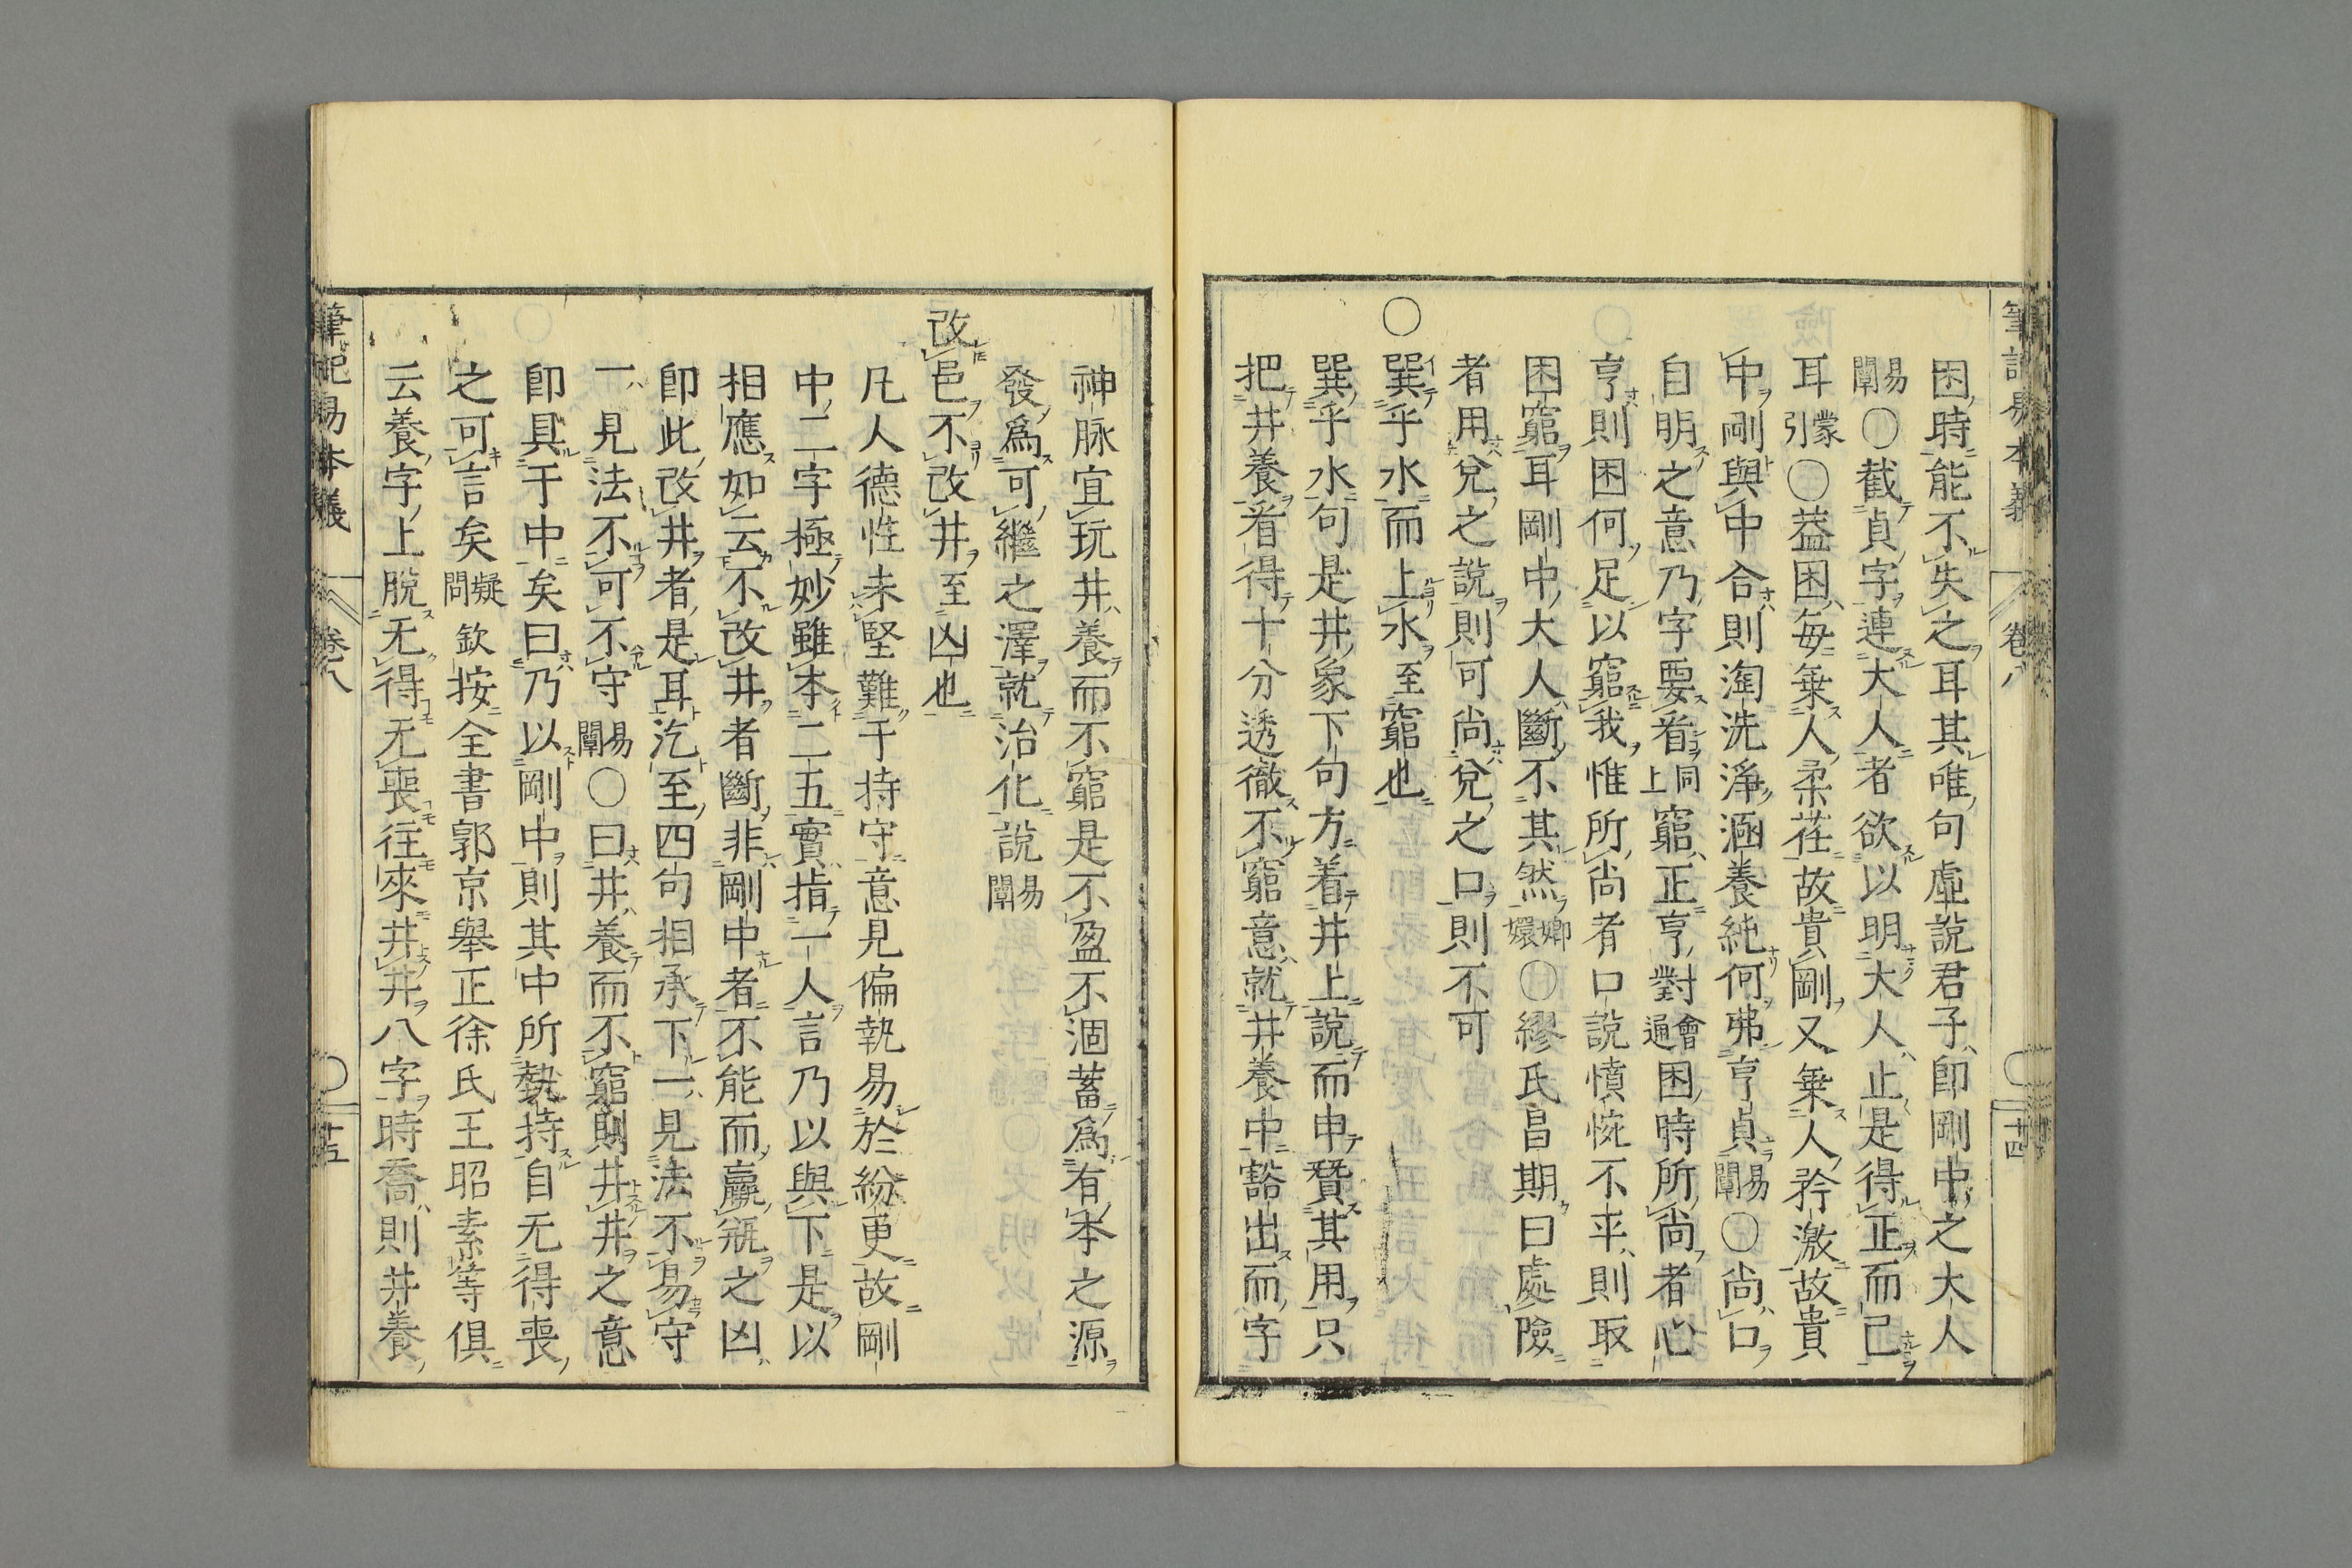 筆記易本義 卷八 十四
困時能不失之耳其唯句虛說君子即剛中之大人
易闡○截貞字連大人者欲以明大人止是得正而已
耳蒙引○葢困每乗人柔荏故貴剛又乗人矜激故貴
中剛與中合則淘洗淨涵養純何弗亨貞易闡○尚口
自明之意乃字要看同上窮正亨對會通困時所尚者心
亨則困何足以窮我惟所尚者口說憤惋不平則取
困窮耳剛中大人斷不其然嫏嬛○繆氏昌期曰處險
者用兌之說則可尚兌之口則不可
○巽乎水而上水至窮也
巽乎水句是井象下句方着井上說而申賛其用只
把井養看得十分透徹不窮意就井養中豁出而字
神脉宜玩井養而不窮是不盈不涸蓄為有本之源
發為可繼之澤就治化說易闡
改邑不改井至凶也
凡人德性未堅難于持守意見偏執易於紛更故剛
中二字極妙雖本二五實指一人言乃以與下是以
相應如云不改井者斷非剛中者不能而羸瓶之凶
即此改井者是耳汔至四句相承下一見法不易守
一見法不可不守易闡○曰井養而不窮則井井之意
即具于中矣曰乃以剛中則其中所執持自无得喪
之可言矣疑問欽按全書郭京舉正徐氏王昭素等俱
云養字上脫无得无喪往來井井八字時喬則井養
筆記易本義 卷八 十五